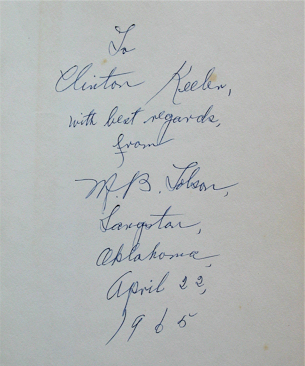 To
Clinton Keeler,
with best regards,
from
M. B. Tolson,
Langston,
Oklahoma,
April 22,
1965